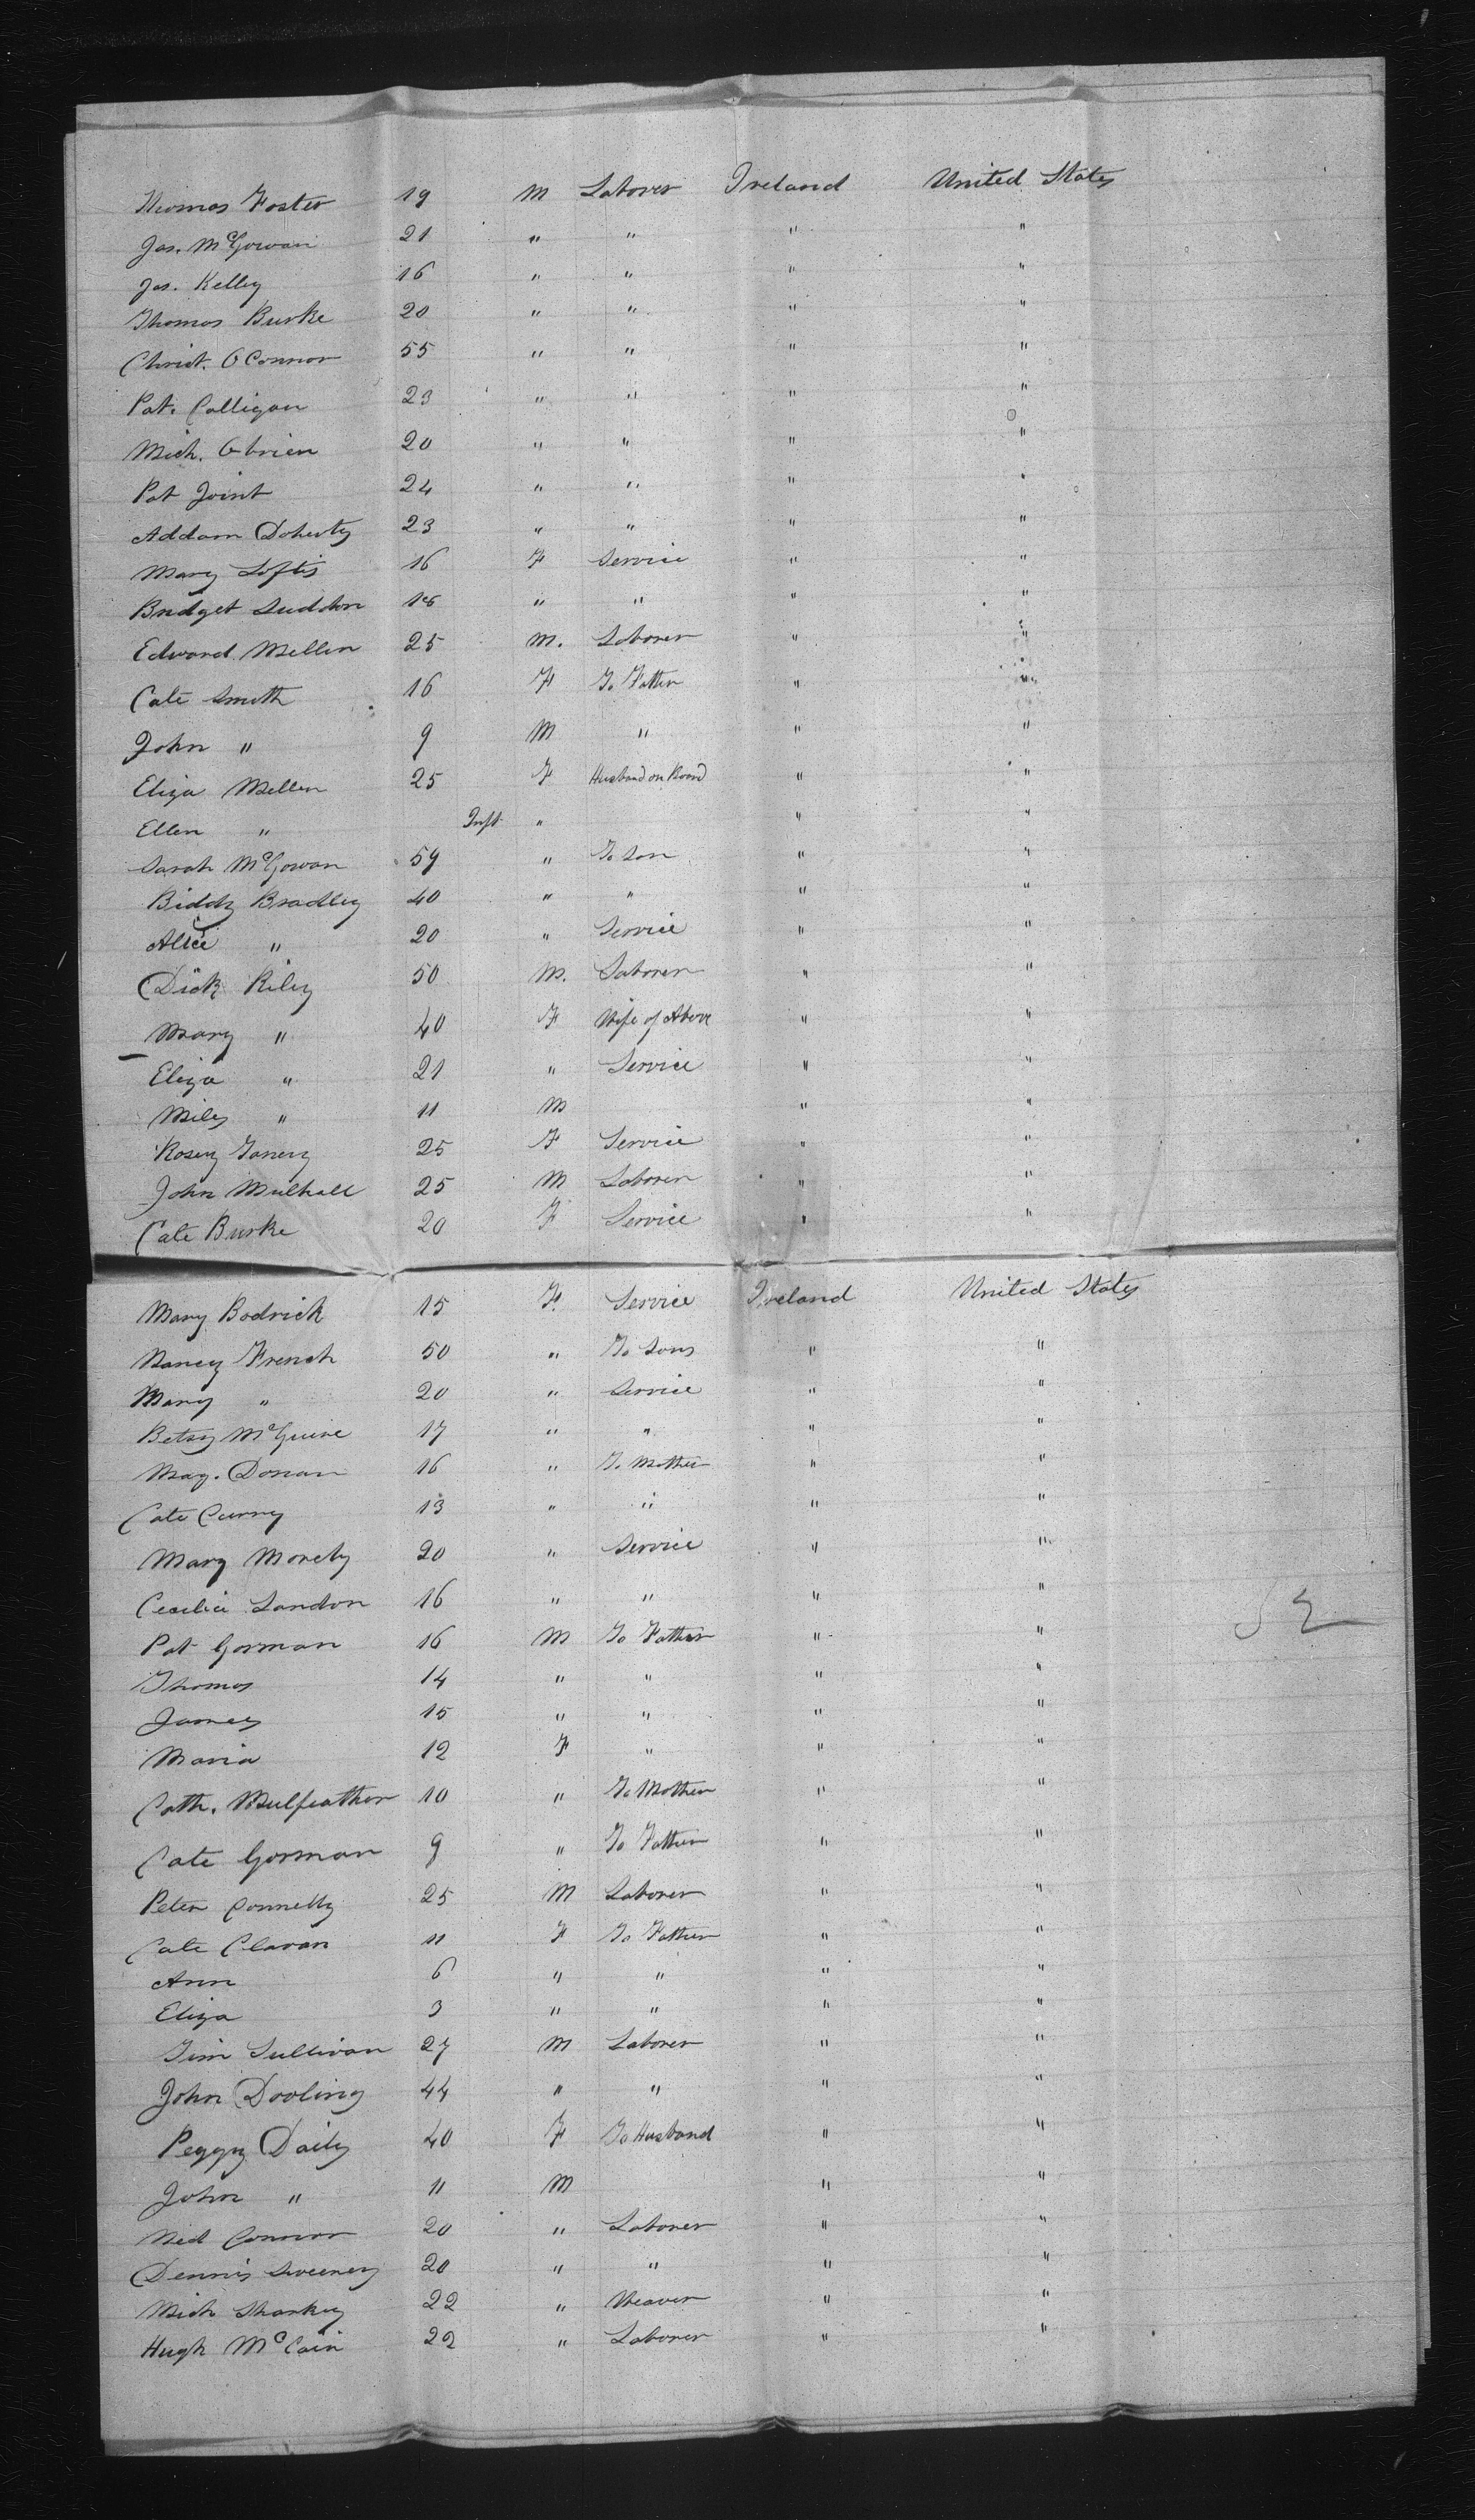 Thomas Foster 19 M Laborer Ireland United States
Jas. McGowan 21 " " " "
Jas. Kelley 16 " " " "
Thomas Burke 20 " " " "
Christ. OConnor 55 " " " "
Pat. Colligan 23 " " " "
Mich. Obrien 20 " " " "
Pat Joint 24 " " " "
Addam Doherty 23 " " " "
Mary Loftis 16 F Service " "
Bridget 18 " " " "
Edward Mellen 25 M. Laborer " "
Cate Smith 16 F To Father " "
John " 9 M " " "
Eliza Mellen 25 F Husband on Board " "
Ellen " Inft " " "
Sarah McGowan 59 " To Son " "
Biddy Bradley 40 " " " "
Alice " 20 " Service " "
Dick Riley 50 M. Laborer " "
Mary " 40 F Wife of Above " "
Eliza " 21 " Service " "
Miles " 11 M " "
Rosey 25 F Service " "
John Mulhall 25 M Laborer " "
Cate Burke 20 F Service " "
Mary Bodrick 15 F. Service Ireland United States
Nancy French 50 " To Sons " "
Mary " 20 " Service " "
Betsy McGuire 17 " " " "
Mag. Donan 16 " To Mother " "
Cate Curry 13 " " " "
Mary 20 " Service " "
Cecelia Landon 16 " " " "
Pat Gorman 16 M To Father " "
Thomas 14 " " " "
James 15 " " " "
Maria 12 F " " "
Cath. Mulfeather 10 " To Mother " "
Cate Gorman 9 " To Father " "
Peter Connelly 25 M Laborer " "
Cate Clavan 11 F To Father " "
Ann 6 " " " "
Eliza 3 " " " "
Tim Sullivan 27 M Laborer " "
John Dooling 44 " " " "
Peggy Daily 40 F To Husband " "
John " 11 M " "
Ned Connor 20 " Laborer " "
Dennis Sweeney 20 " " " "
Mich Sharkey 22 " Weaver " "
Hugh McCain 22 " Laborer " "
52